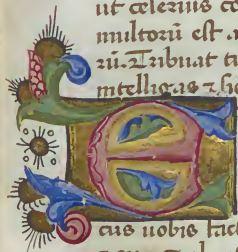 ut celerius co
multorū est
rū. Tribuat ti
intelligas ⁊ h
E
cus uobis fac